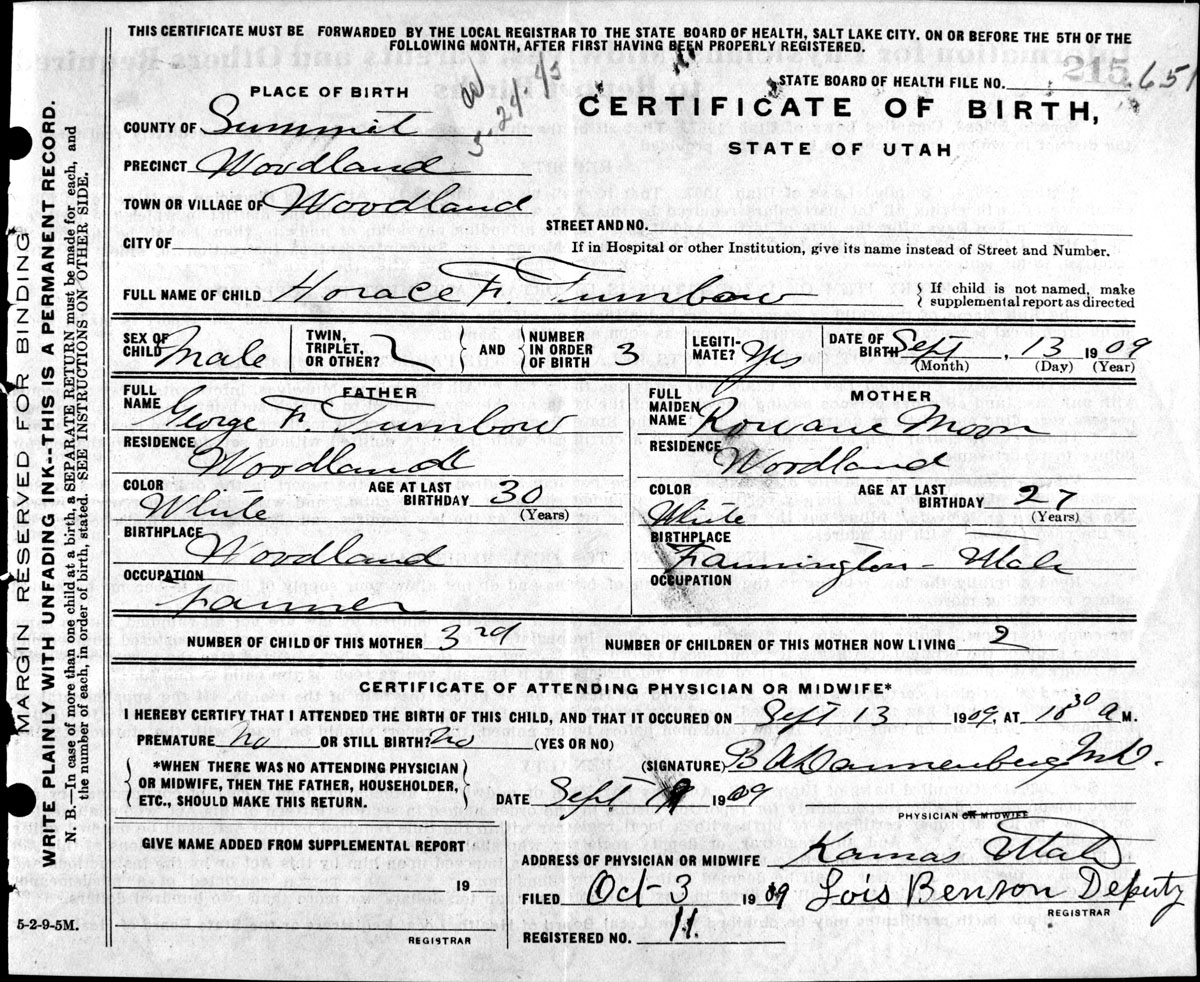 THIS CERTIFICATE MUST BE FORWARDED BY THE LOCAL REGISTRAR TO THE STATE BOARD OF HEALTH, SALT LAKE CITY. ON OR BEFORE THE 5TH OF THE
FOLLOWING MONTH, AFTER FIRST HAVING BEEN PROPERLY REGISTERED.
5-24-45
STATE BOARD OF HEALTH FILE NO. 215 651
PLACE OF BIRTH
CERTIFICATE OF BIRTH,
STATE OF UTAH
COUNTY OF Summit
PRECINCT Woodland
TOWN OR VILLAGE OF Woodland
STREET AND NO.
CITY OF
If in Hospital or other Institution, give its name instead of Street and Number.
FULL NAME OF CHILD Horace F Turnbow
If child is not named, make
supplemental report as directed
SEX OF CHILD Male
TWIN, TRIPLET, OR OTHER?
AND
NUMBER IN ORDER OF BIRTH 3
LEGITIMATE? Yes
DATE OF BIRTH Sept, 13 1909
(Month) (Day) (Year)
FATHER
FULL NAME George F. Turnbow
RESIDENCE
Woodland
COLOR
White
AGE AT LAST BIRTHDAY 30
(Years)
BIRTHPLACE
Woodland
OCCUPATION
Farmer
MOTHER
FULL MAIDEN NAME Rowane Moon
RESIDENCE
Woodland
COLOR
White
AGE AT LAST BIRTHDAY 27
(Years)
BIRTHPLACE
Farmington - Utah
OCCUPATION
NUMBER OF CHILD OF THIS MOTHER 3rd
NUMBER OF CHILDREN OF THIS MOTHER NOW LIVING 2
CERTIFICATE OF ATTENDING PHYSICIAN OR MIDWIFE*
I HEREBY CERTIFY THAT I ATTENDED THE BIRTH OF THIS CHILD, AND THAT IT OCCURED ON Sept 13 1909. AT 10 30 A M.
PREMATURE No OR STILL BIRTH? No (YES OR NO)
*WHEN THERE WAS NO ATTENDING PHYSICIAN
OR MIDWIFE, THEN THE FATHER, HOUSEHOLDER,
ETC., SHOULD MAKE THIS RETURN.
(SIGNATURE) B A Dannenberg M.D.
DATE Sept 1909
PHYSICIAN OR MIDWIFE
GIVE NAME ADDED FROM SUPPLEMENTAL REPORT
19
REGISTRAR
ADDRESS OF PHYSICIAN OR MIDWIFE Kamas Utah
FILED Oct-3 1909 Lois Benson Deputy
REGISTRAR
REGISTERED NO. 11.
5-2-9-5M.
MARGIN RESERVED FOR BINDING
WRITE PLAINLY WITH UNFADING INK--THIS IS A PERMANENT RECORD.
N. B.—In case of more than one child at a birth, a SEPARATE RETURN must be made for each, and
the number of each, in order of birth, stated. SEE INSTRUCTIONS ON OTHER SIDE.